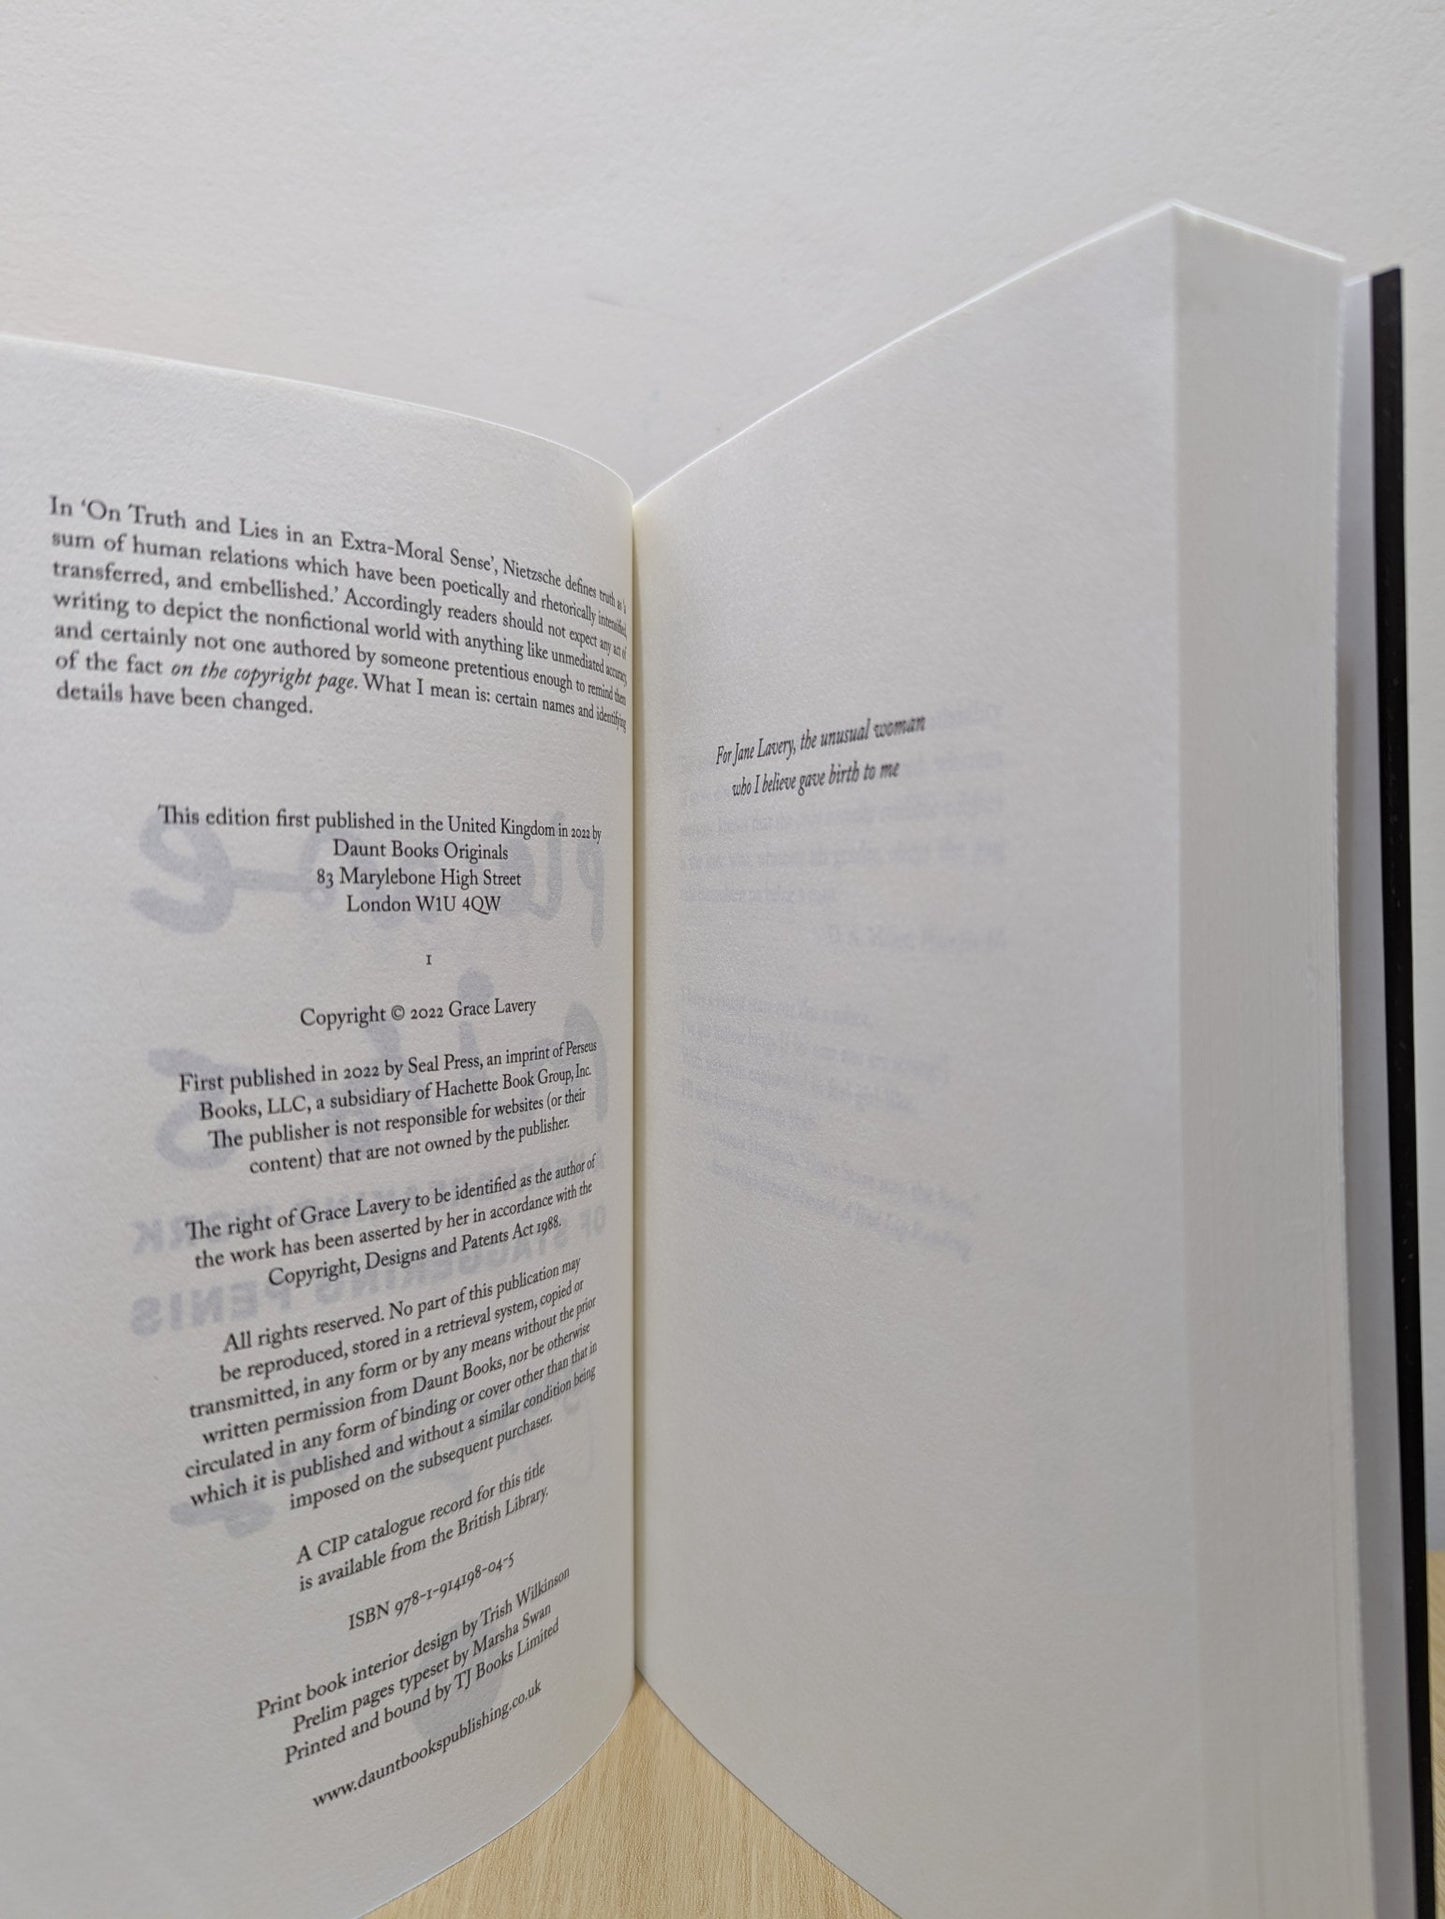 In ‘On Truth and Lies in an Extra-Moral Sense’, Nietzsche defines truth as ‘a
sum of human relations which have been poetically and rhetorically intensified,
transferred, and embellished.’ Accordingly readers should not expect any act of
writing to depict the nonfictional world with anything like unmediated accuracy,
and certainly not one authored by someone pretentious enough to remind them
of the fact on the copyright page. What I mean is: certain names and identifying
details have been changed.
This edition first published in the United Kingdom in 2022 by
Daunt Books Originals
83 Marylebone High Street
London W1U 4QW
1
Copyright © 2022 Grace Lavery
First published in 2022 by Seal Press, an imprint of Perseus
Books, LLC, a subsidiary of Hachette Book Group, Inc.
The publisher is not responsible for websites (or their
content) that are not owned by the publisher.
The right of Grace Lavery to be identified as the author of
the work has been asserted by her in accordance with the
Copyright, Designs and Patents Act 1988.
All rights reserved. No part of this publication may
be reproduced, stored in a retrieval system, copied or
transmitted, in any form or by any means without the prior
written permission from Daunt Books, nor be otherwise
circulated in any form of binding or cover other than that in
which it is published and without a similar condition being
imposed on the subsequent purchaser.
A CIP catalogue record for this title
is available from the British Library.
ISBN 978-1-914198-04-5
Print book interior design by Trish Wilkinson
Prelim pages typeset by Marsha Swan
Printed and bound by TJ Books Limited
www.dauntbookspublishing.co.uk
For Jane Lavery, the unusual woman
who I believe gave birth to me